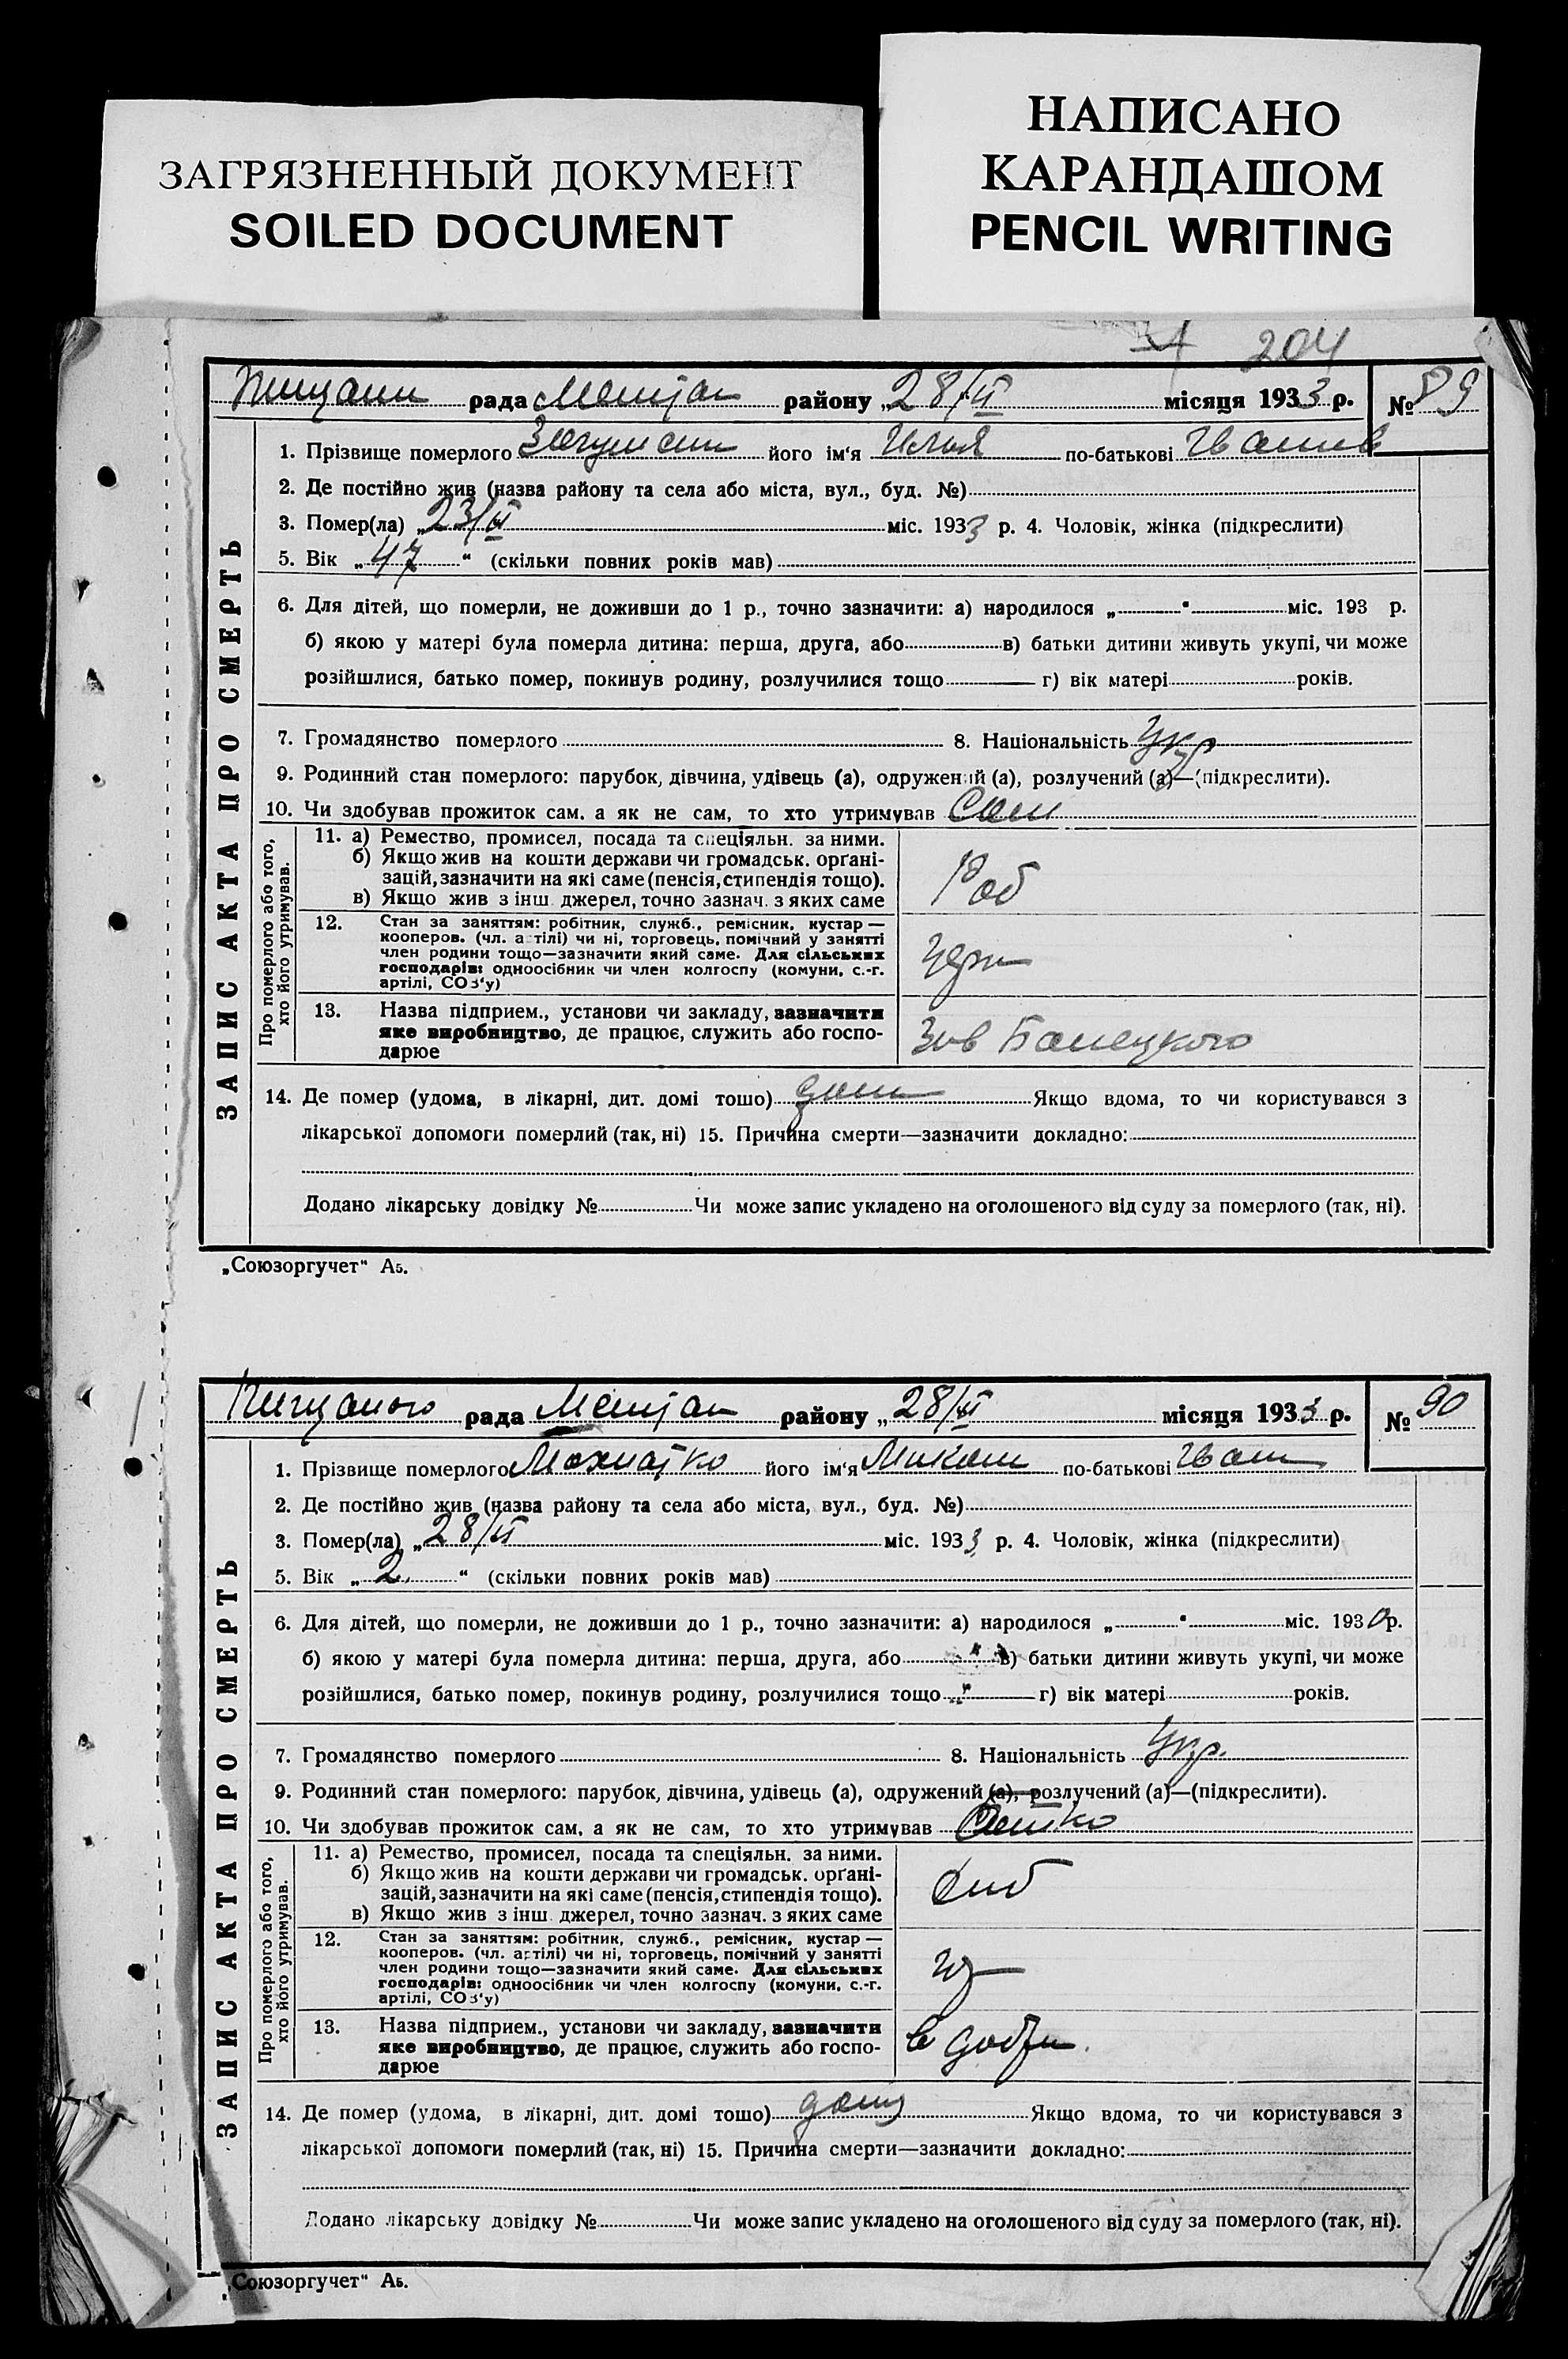 НАПИСАНО
КАРАНДАШОМ
PENCIL WRITING
ЗАГРЯЗНЕННЫЙ ДОКУМЕНТ
SOILED DOCUMENT
204
рада района „28/VI місяця 1933 р. № 89
ЗАПИС АКТА ПРО СМЕРТЬ
1. Прізвище померлого його ім'я Илья по-батькові
2. Де постійно жив (назва району та села або міста, вул., буд. №)
3. Помер(ла) „23/VI міс. 1933 р. 4. Чоловік, жінка (підкреслити)
5. Вік „47“ (скільки повних років мав)
6. Для дітей, що померли, не доживши до 1 р., точно зазначити: а) народилося „ “ міс. 193 р.
б) якою у матері була померла дитина: перша, друга, або в) батьки дитини живуть укупі, чи може
розійшлися, батько помер, покинув родину, розлучилися тощо г) вік матері років.
7. Громадянство померлого 8. Національність Укр
9. Родинний стан померлого: парубок, дівчина, удівець (а), одружений (а), розлучений (а)—(підкреслити).
10. Чи здобував прожиток сам, а як не сам, то хто утримував Сам
Про померлого або того, хто його утримував.
11. а) Ремество, промисел, посада та спеціяльн. за ними.
б) Якщо жив на кошти держави чи громадськ. орґані-
зацій, зазначити на які саме (пенсія, стипендія тощо).
в) Якщо жив з інш. джерел, точно зазнач. з яких саме
Роб
12. Стан за заняттям: робітник, служб., ремісник, кустар —
кооперов. (чл. артілі) чи ні, торговець, помічний у занятті
член родини тощо—зазначити який саме. Для сільських
господарів: одноосібник чи член колгоспу (комуни, с.-г.
артілі, СОЗ'у)
13. Назва підприєм., установи чи закладу, зазначити
яке виробництво, де працює, служить або госпо-
дарює
14. Де помер (удома, в лікарні, дит. домі тошо) дома Якщо вдома, то чи користувався з
лікарської допомоги померлий (так, ні) 15. Причина смерти—зазначити докладно:
Додано лікарську довідку № Чи може запис укладено на оголошеного від суду за померлого (так, ні).
„Союзоргучет“ А5.
рада району „28/VI місяця 1933 р. № 90
ЗАПИС АКТА ПРО СМЕРТЬ
1. Прізвище померлого Махнатко його ім'я Микола по-батькові Иван
2. Де постійно жив (назва району та села або міста, вул., буд. №)
3. Помер(ла) „28/VI міс. 1933 р. 4. Чоловік, жінка (підкреслити)
5. Вік „2“ (скільки повних років мав)
6. Для дітей, що померли, не доживши до 1 р., точно зазначити: а) народилося „ “ міс. 1930 р.
б) якою у матері була померла дитина: перша, друга, або в) батьки дитини живуть укупі, чи може
розійшлися, батько помер, покинув родину, розлучилися тощо г) вік матері років.
7. Громадянство померлого 8. Національність Укр.
9. Родинний стан померлого: парубок, дівчина, удівець (а), одружений (а), розлучений (а)—(підкреслити).
10. Чи здобував прожиток сам, а як не сам, то хто утримував
Про померлого або того, хто його утримував.
11. а) Ремество, промисел, посада та спеціяльн. за ними.
б) Якщо жив на кошти держави чи громадськ. орґані-
зацій, зазначити на які саме (пенсія, стипендія тощо).
в) Якщо жив з інш. джерел, точно зазнач. з яких саме
12. Стан за заняттям: робітник, служб., ремісник, кустар —
кооперов. (чл. артілі) чи ні, торговець, помічний у занятті
член родини тощо—зазначити який саме. Для сільських
господарів: одноосібник чи член колгоспу (комуни, с.-г.
артілі, СОЗ'у)
13. Назва підприєм., установи чи закладу, зазначити
яке виробництво, де працює, служить або госпо-
дарює
14. Де помер (удома, в лікарні, дит. домі тошо) дома Якщо вдома, то чи користувався з
лікарської допомоги померлий (так, ні) 15. Причина смерти—зазначити докладно:
Додано лікарську довідку № Чи може запис укладено на оголошеного від суду за померлого (так, ні).
„Союзоргучет“ А5.